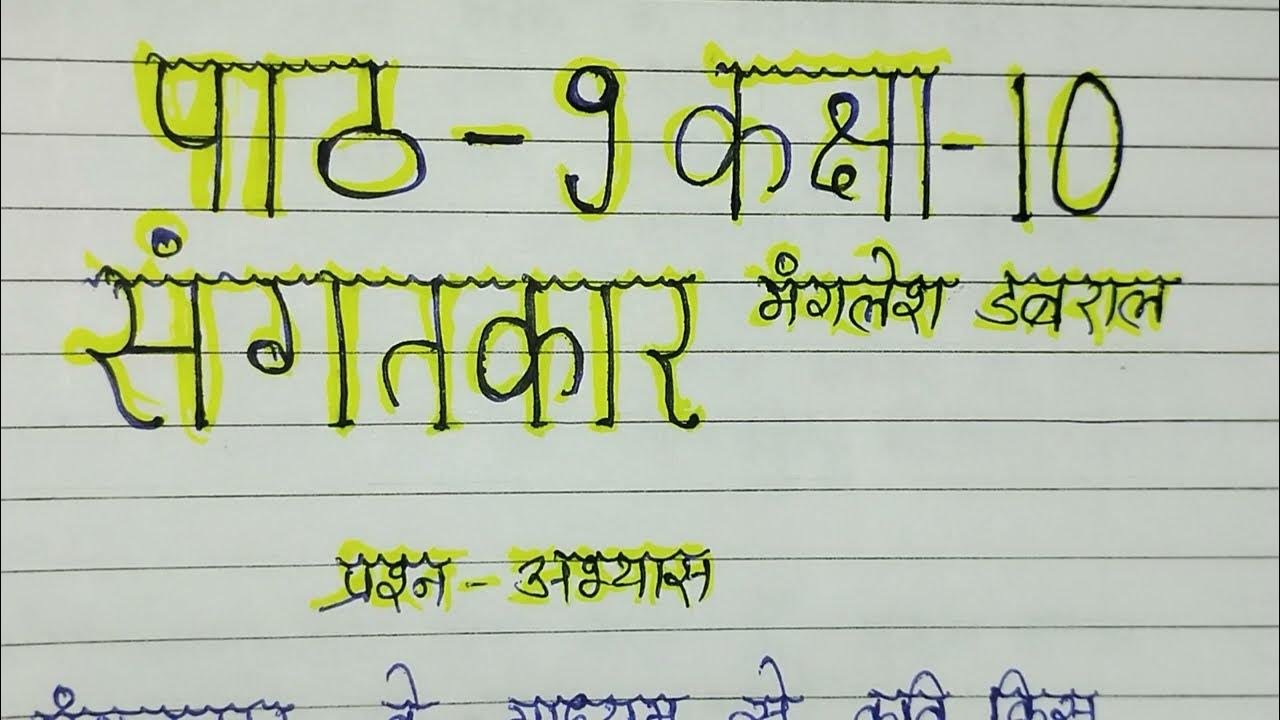 पाठ - 9 कक्षा - 10
संगतकार मंगलेश डबराल
प्रश्न - अभ्यास
के माध्यम से कवि किस